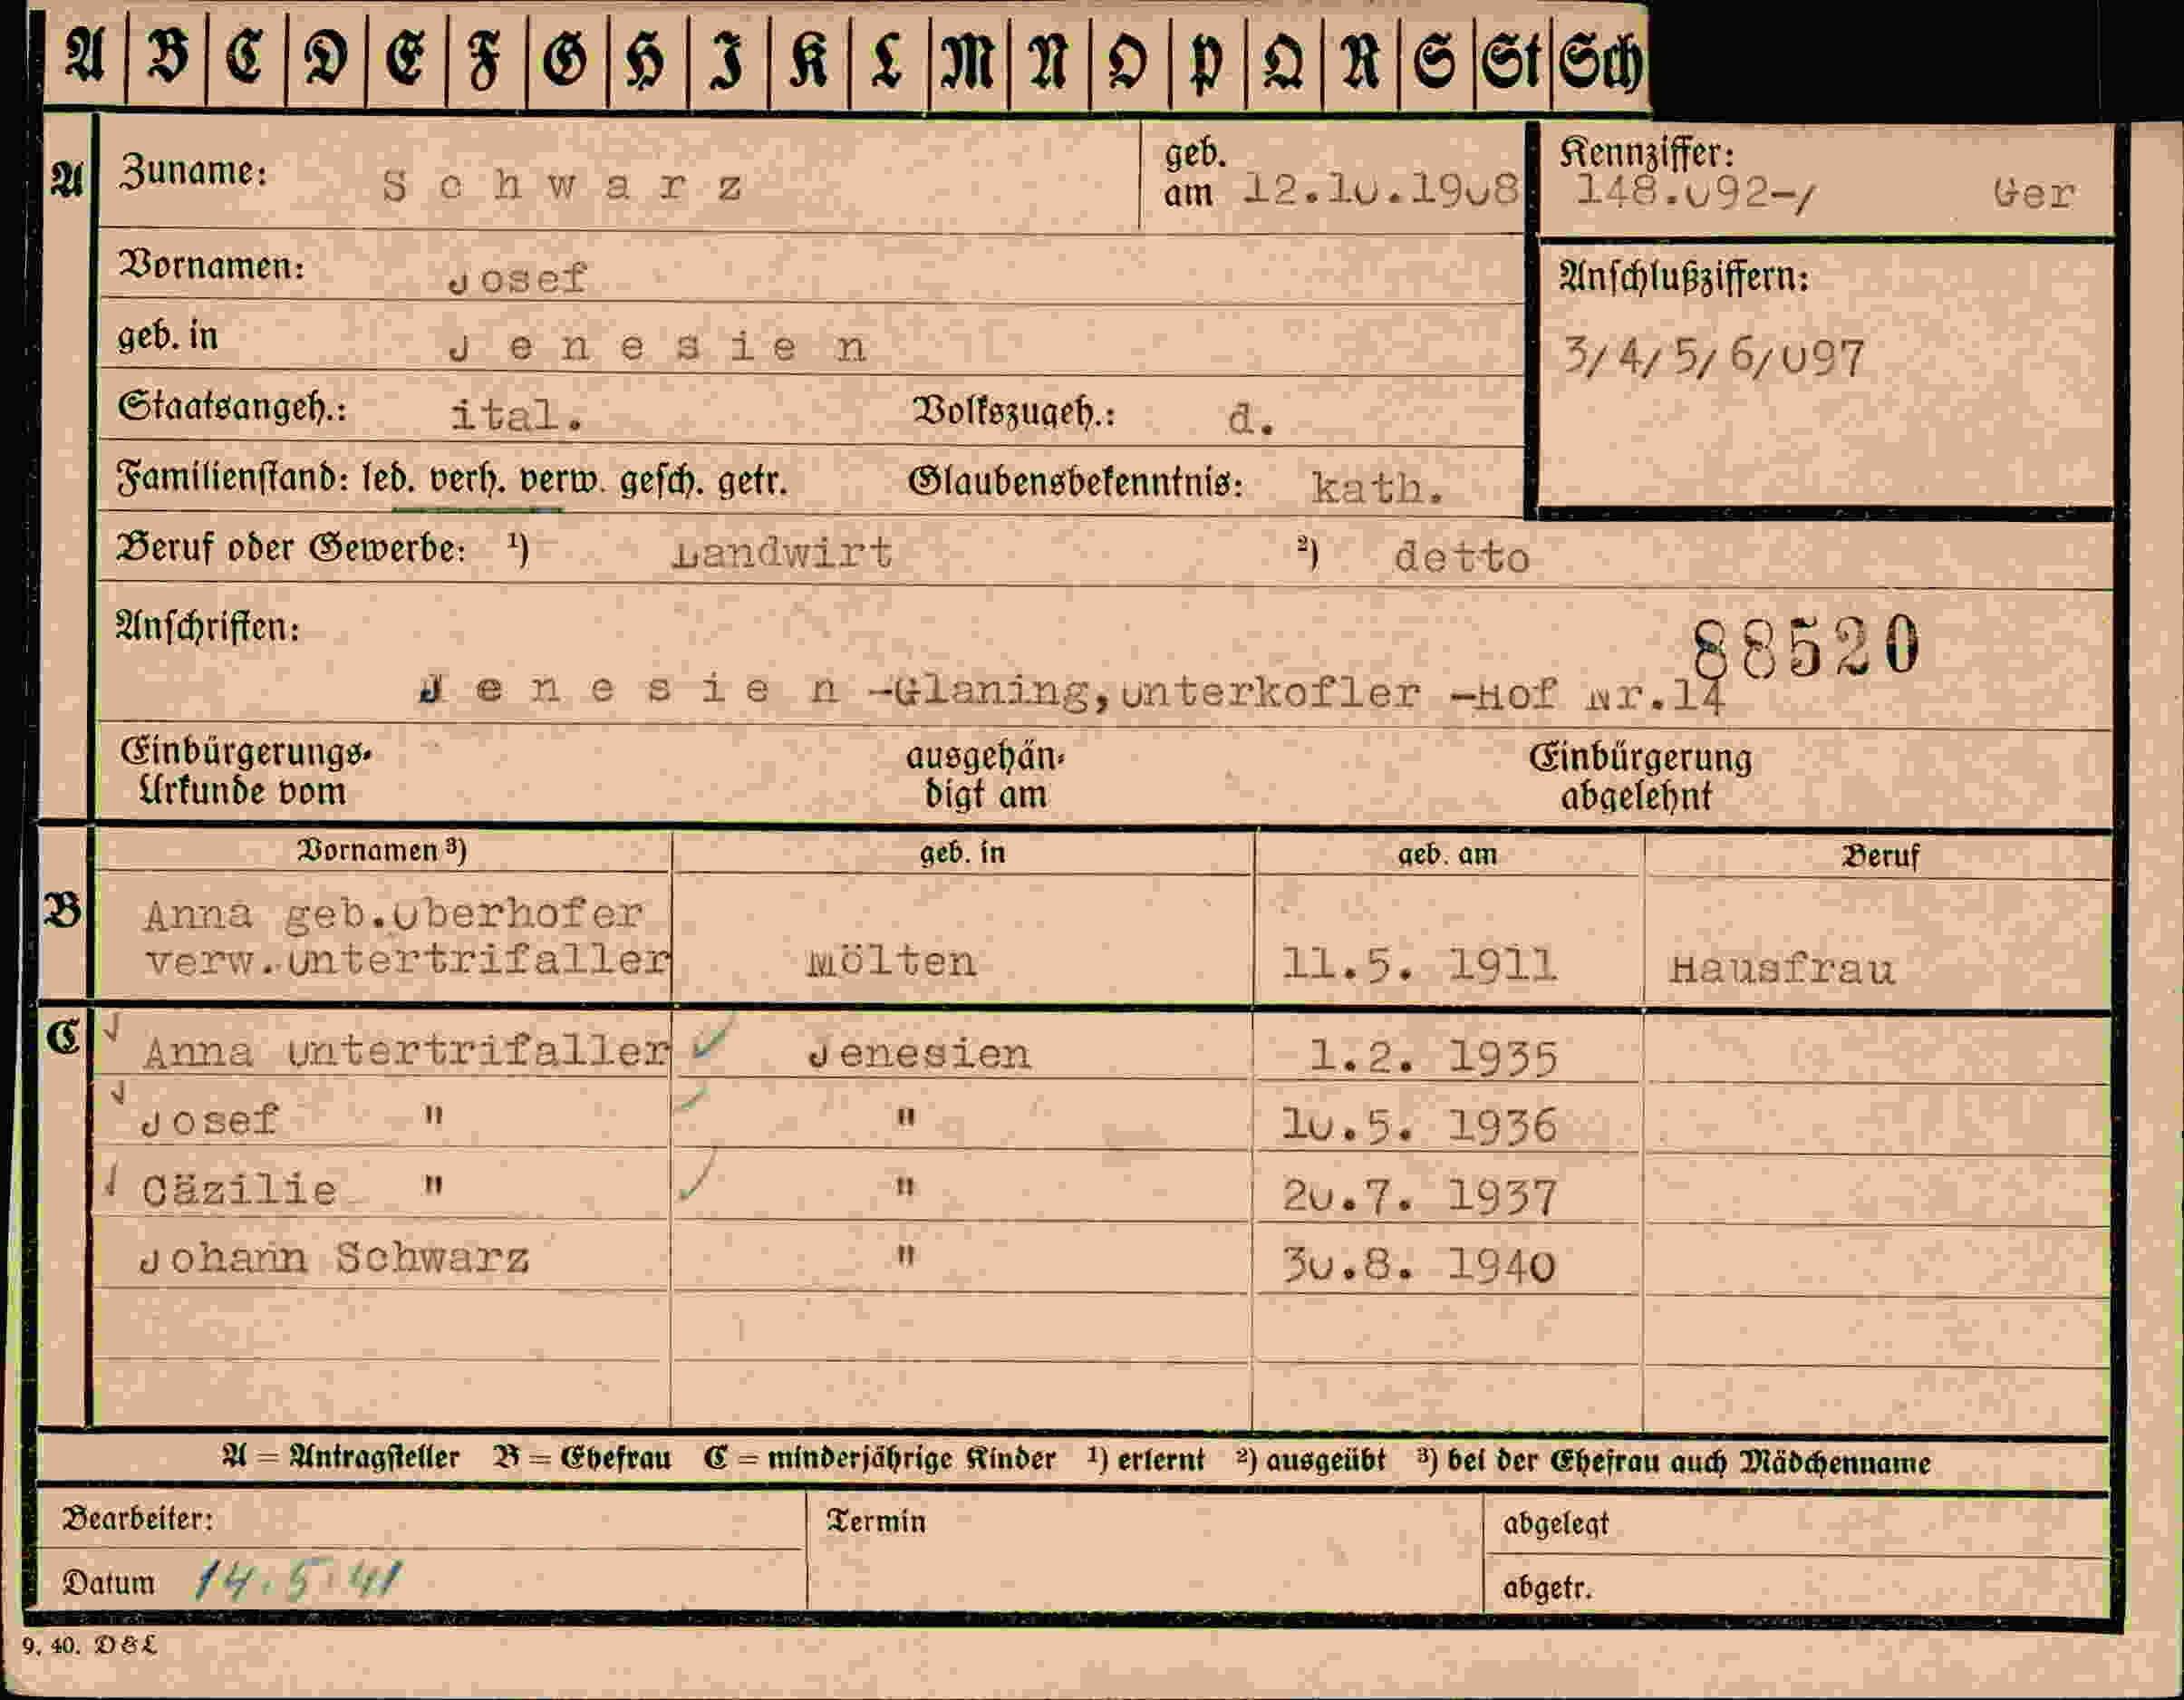 A B C D E F G H I K L M N O P Q R S St Sch
A Zuname: Schwarz geb. am 12.10.1908 Kennziffer: 148.092-/ Ger
Vornamen: Josef Anschlußziffern:
geb. in Jenesien 3/4/5/6/097
Staatsangeh.: ital. Volkszugeh.: d.
Familienstand: led. verh. verw. gesch. getr. Glaubensbekenntnis: kath.
Beruf oder Gewerbe: ¹) Landwirt ²) detto
Anschriften: 88520
Jenesien -Glaning,Unterkofler -Hof Nr.14
Einbürgerungs- ausgehän- Einbürgerung
Urkunde vom digt am abgelehnt
Vornamen ³) geb. in geb. am Beruf
B Anna geb.Oberhofer
verw.Untertrifaller Mölten 11.5. 1911 Hausfrau
C Anna Untertrifaller Jenesien 1.2. 1935
Josef " " 10.5. 1936
Cäzilie " " 20.7. 1937
Johann Schwarz " 30.8. 1940
A = Antragsteller B = Ehefrau C = minderjährige Kinder ¹) erlernt ²) ausgeübt ³) bei der Ehefrau auch Mädchenname
Bearbeiter: Termin abgelegt
Datum 14.5.41 abgetr.
9. 40. D&L